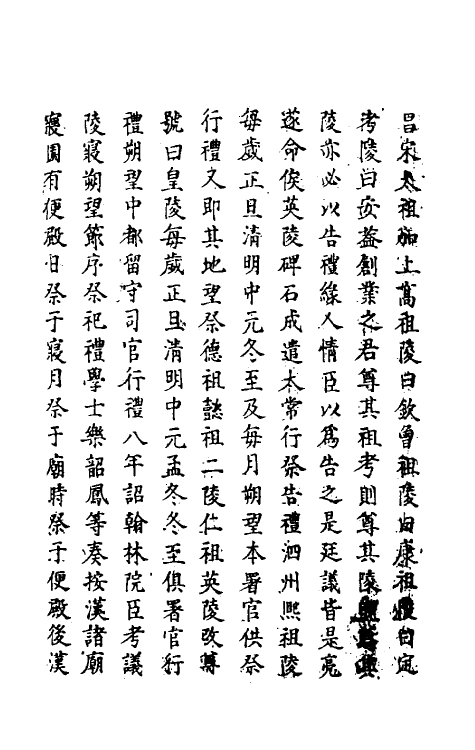 昌宋太祖加上高祖陵曰欽曾祖陵曰康祖陵曰定
考陵曰安蓋創業之君尊其祖考則尊其陵
陵亦必以告禮緣人情臣以爲告之是廷議皆是亮
遂命俟英陵碑石成遣太常行祭告禮泗州熙祖陵
每歲正旦清明中元冬至及每月朔望本署官供祭
行禮又即其地望祭德祖懿祖二陵仁祖英陵改尊
號曰皇陵每歲正旦清明中元孟冬冬至俱署官行
禮朔望中都留守司官行禮八年詔翰林院臣考議
陵寢朔望節序祭祀禮學士樂韶鳳等奏按漢諸廟
寢園有便殿日祭于寢月祭于廟時祭于便殿後漢